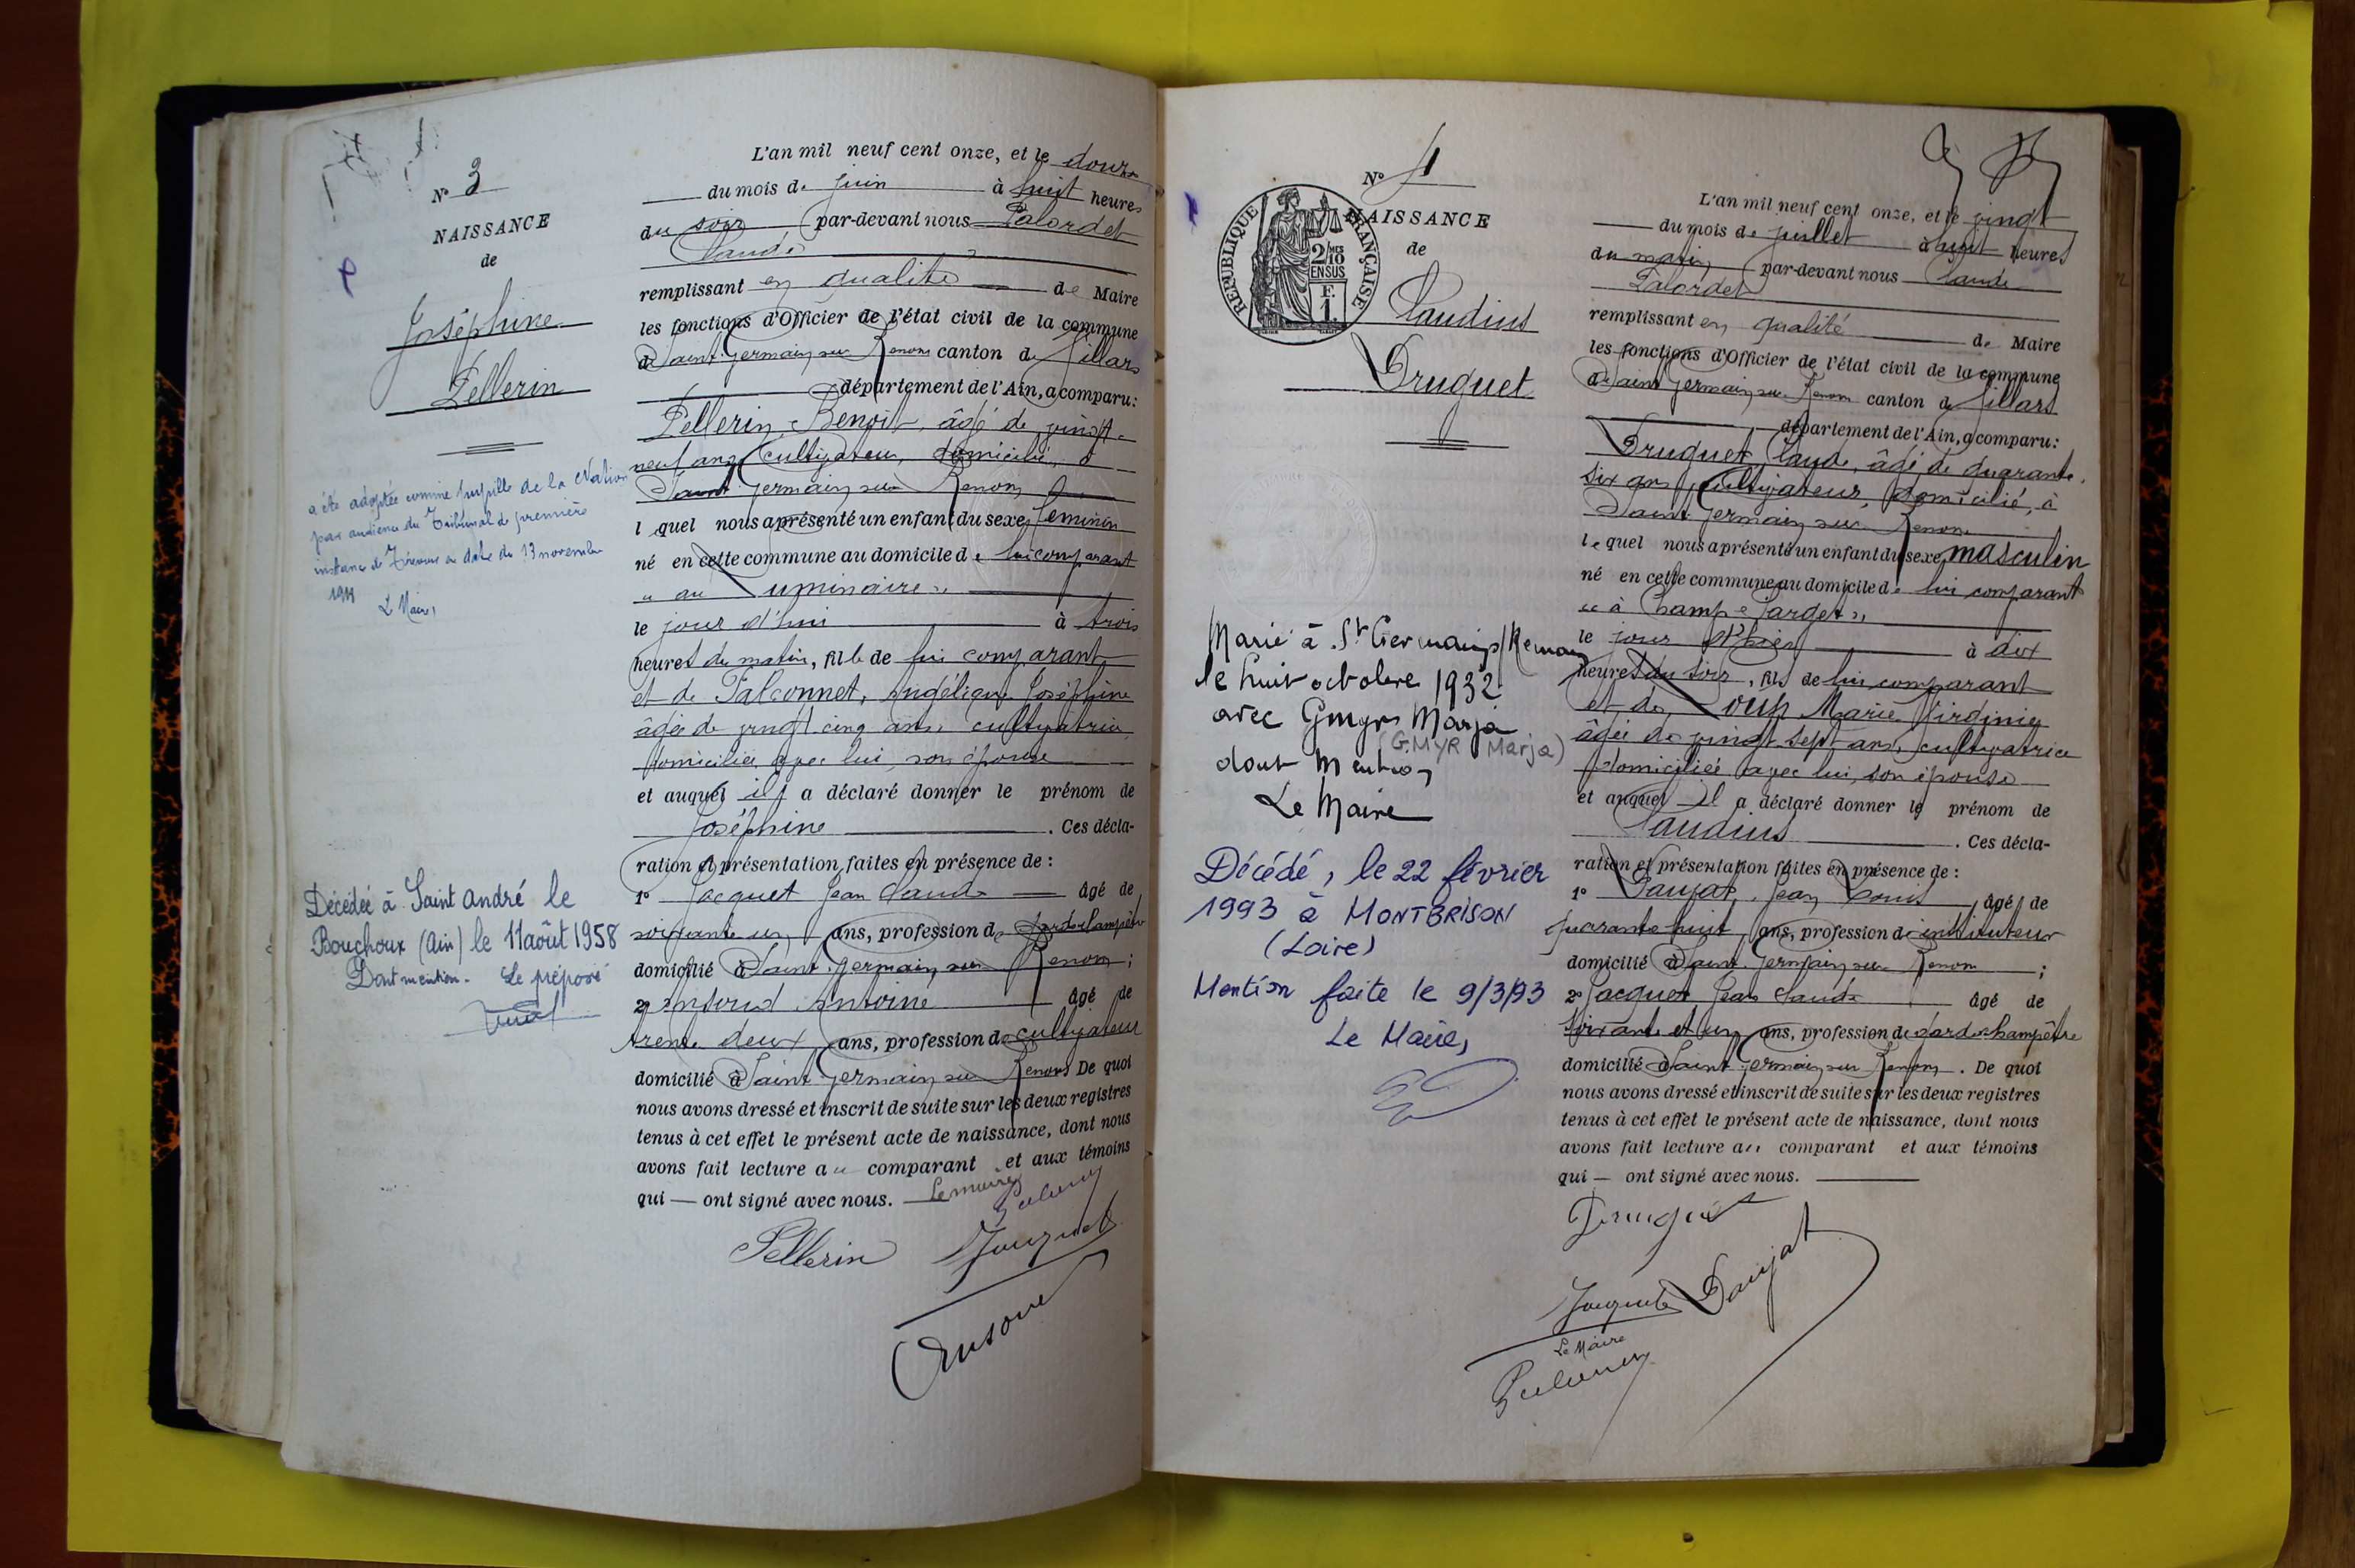 N° 3
NAISSANCE
de
Joséphine
Pellerin
a été adoptée comme pupille de la Nation
par audience du Tribunal de première
instance de Trévoux en date du 13 novembre
Le Maire,
Décédée à Saint André le
Bouchoux (Ain) le 11 août 1958
Dont mention. Le préposé
L'an mil neuf cent onze, et le douze
du mois de juin à huit heures
du soir par-devant nous Palordet
Claude
remplissant en qualité de Maire
les fonctions d'Officier de l'état civil de la commune
de Saint-Germain sur Renom canton de Villars
département de l'Ain, a comparu:
Pellerin Benoit, âgé de vingt-
neuf ans, cultivateur, domicilié, à
Saint Germain sur Renom
lequel nous a présenté un enfant du sexe feminin
né en cette commune au domicile de lui comparant
" au Luminaire "
le jour d'hui à trois
heures du matin, fille de lui comparant
et de Falconnet, Angélique Joséphine
âgée de vingt cinq ans, cultivatrice
domiciliée avec lui, son épouse
et auquel il a déclaré donner le prénom de
Joséphine. Ces décla-
ration et présentation faites en présence de :
1° Jacquet Jean Claude âgé de
soixante un ans, profession de garde champêtre
domicilié à Saint Germain sur Renom ;
2° Antoine âgé de
trente deux ans, profession de cultivateur
domicilié à Saint-Germain sur Renom De quoi
nous avons dressé et inscrit de suite sur les deux registres
tenus à cet effet le présent acte de naissance, dont nous
avons fait lecture au comparant et aux témoins
qui — ont signé avec nous. Le maire
Pellerin Jacquet
N° 4
RÉPUBLIQUE FRANÇAISE
2/10 MES
EN SUS
F.
1.
NAISSANCE
de
Claudius
Druguet
Marié à St Germain s/ Renom
le huit octobre 1932
avec Gmyr Marja
(GMYR Marja)
dont mention
Le Maire
Décédé, le 22 février
1993 à MONTBRISON
(Loire)
Mention faite le 9/3/93
Le Maire,
L'an mil neuf cent onze, et le vingt
du mois de juillet à huit heures
du matin par-devant nous Claude
Palordet
remplissant en qualité de Maire
les fonctions d'Officier de l'état civil de la commune
de Saint Germain sur Renom canton de Villars
département de l'Ain, a comparu:
Druguet, Claude, âgé de quarante
six ans, cultivateur, domicilié, à
Saint Germain sur Renom
lequel nous a présenté un enfant du sexe masculin
né en cette commune au domicile de lui comparant
" à Champ "
le jour d'hier à dix
heures du soir, fils de lui comparant
et de Marie Virginie
âgée de vingt sept ans, cultivatrice
domiciliée avec lui, son épouse
et auquel il a déclaré donner le prénom de
Claudius. Ces décla-
ration et présentation faites en présence de :
1° Daujat, Jean Louis, âgé de
quarante huit ans, profession de instituteur
domicilié à Saint Germain sur Renom ;
2° Jacquet Jean Claude âgé de
soixante et un ans, profession de garde champêtre
domicilié à Saint-Germain sur Renom. De quoi
nous avons dressé et inscrit de suite sur les deux registres
tenus à cet effet le présent acte de naissance, dont nous
avons fait lecture au comparant et aux témoins
qui — ont signé avec nous.
Druguet
Jacquet Daujat
Le Maire